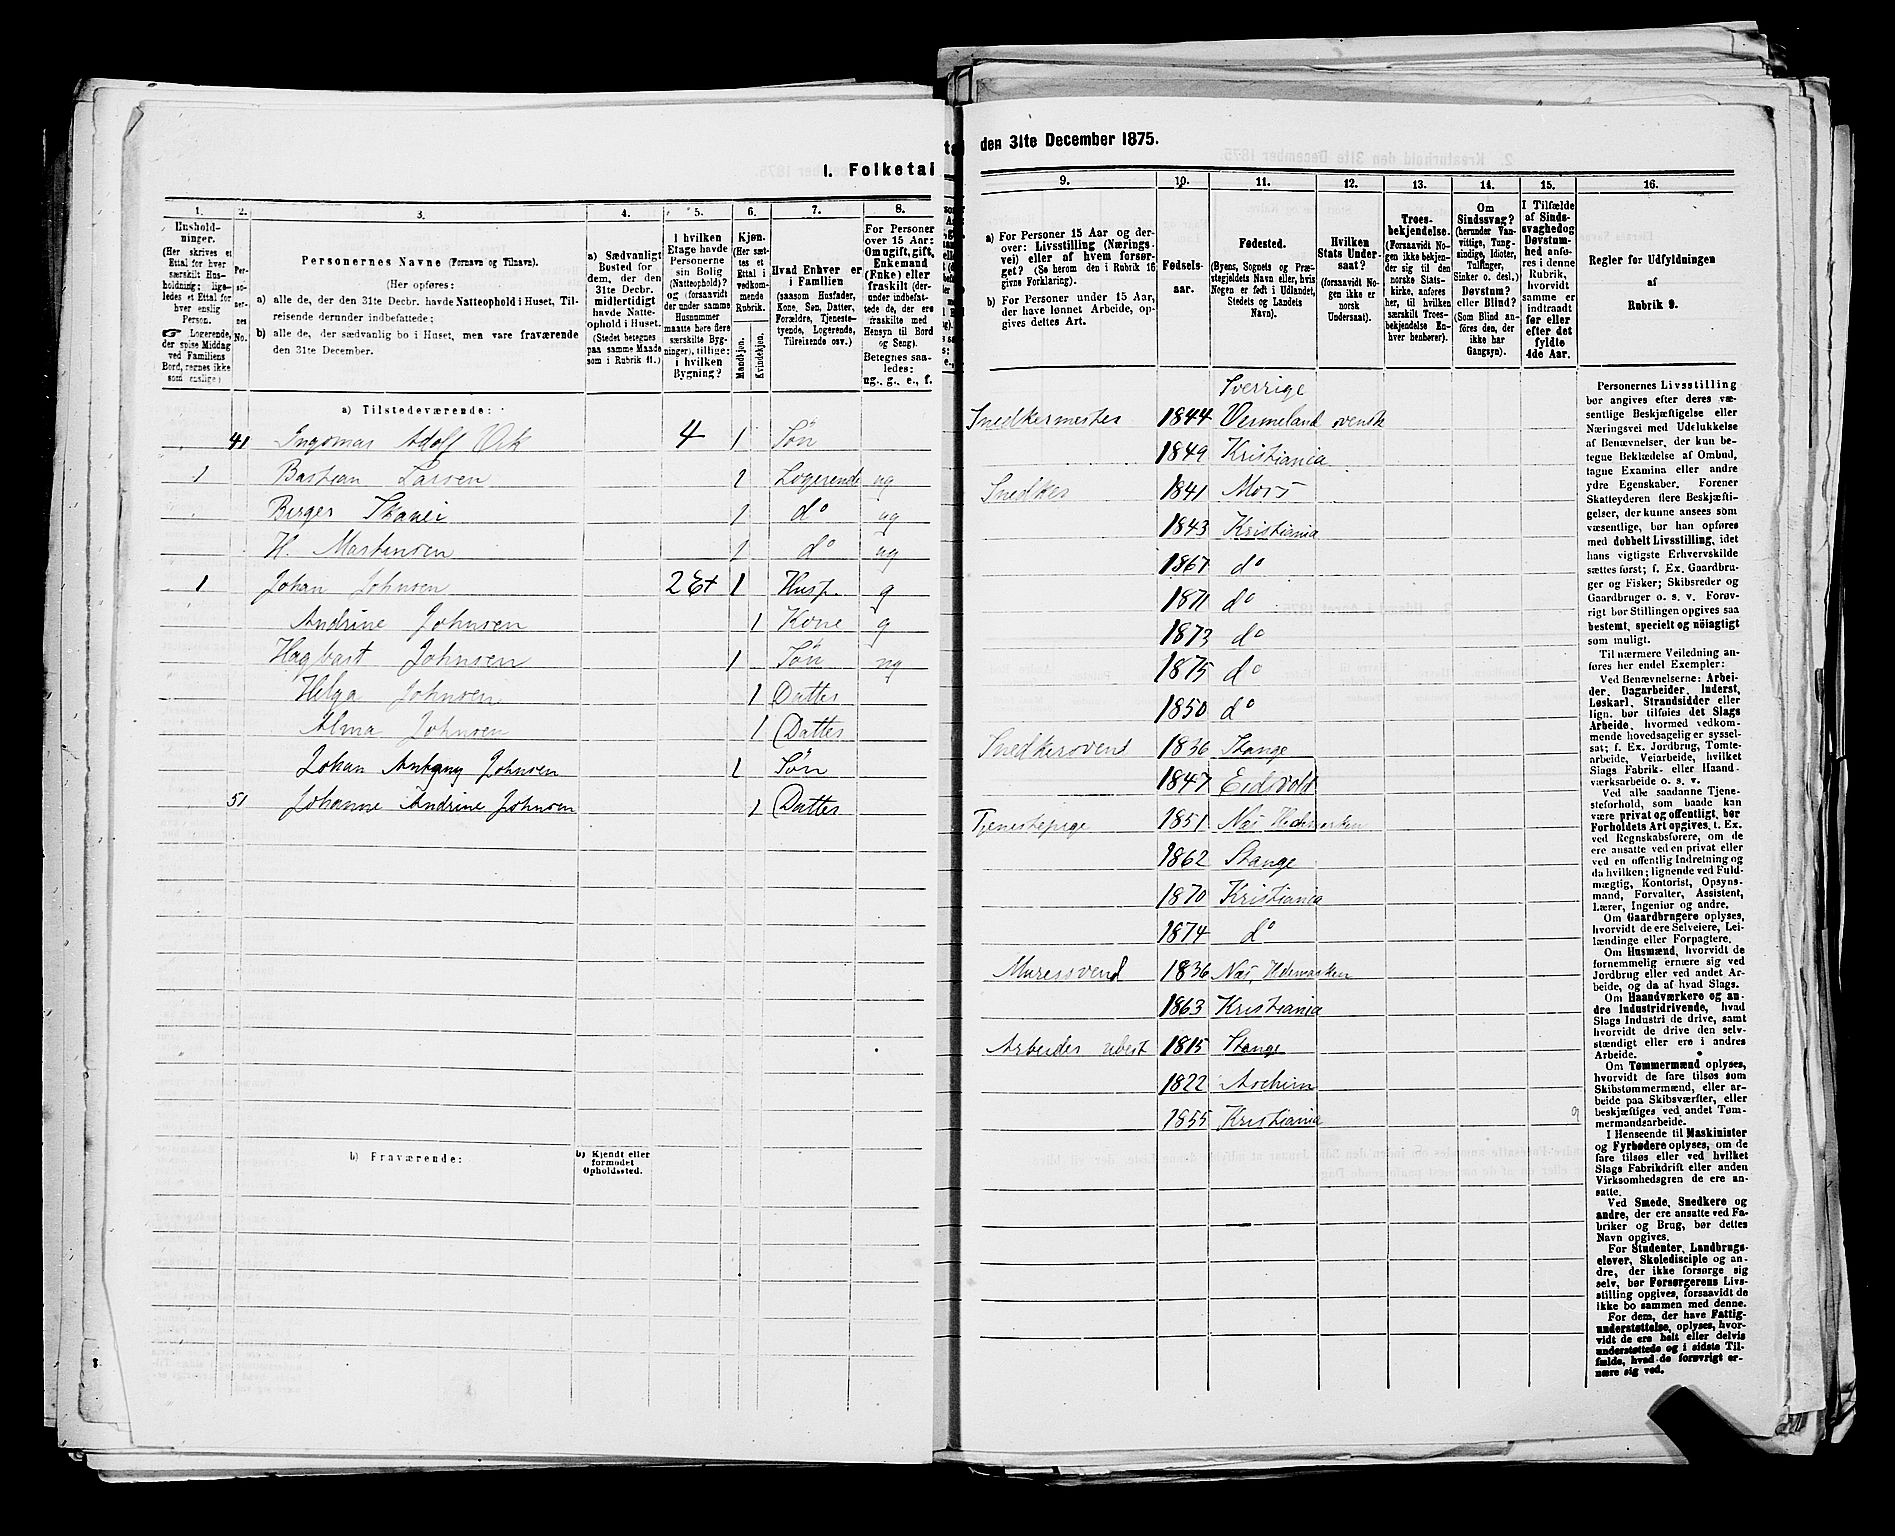 I. Folketal
1. 2. 3. 4. 5. 6. 7. 8.
Hushold-
ninger.
(Her skrives et
Ettal for hver
særskilt Hus-
holdning; lige-
ledes et Ettal for
hver enslig
Person.
☞ Logerende,
der spise Middag
ved Familiens
Bord, regnes ikke
som enslige)
Per-
so-
ner-
nes
No.
Personernes Navne (Fornavn og Tilnavn).
(Her opføres:
a) alle de, der den 31te Decbr. havde Natteophold i Huset, Til-
reisende derunder indbefattede;
b) alle de, der sædvanlig bo i Huset, men vare fraværende
den 31te December.
a) Sædvanligt
Bosted for
dem, der den
31te Decbr.
midlertidigt
havde Natte-
ophold i Huset.
(Stedet betegnes
paa samme Maade
som i Rubrik 11.)
I hvilken
Etage havde
Personerne
sin Bolig
(Natteophold)?
og (forsaavidt
der under samme
Husnummer
maatte høre flere
særskilte Byg-
ninger), tillige:
i hvilken
Bygning?
Kjøn.
(Her sæt-
tes et
Ettal i
vedkom-
mende
Rubrik.
Mandkjøn.
Kvindekjøn.
Hvad Enhver er
i Familien
(saasom Husfader,
Kone, Søn, Datter,
Forældre, Tjeneste-
tyende, Logerende,
Tilreisende osv.)
For Personer
over 15 Aar:
Om ugift, gift,
Enkemand
(Enke) eller
fraskilt (der-
under indbefat-
tede de, der ere
fraskilte med
Hensyn til Bord
og Seng).
Betegnes saa-
ledes:
ug., g., e., f.
a) Tilstedeværende:
41 Ingomar Adolf Ek 4 1 Søn
1 Bastian Larsen 1 Logerende ug
Birger 1 do ug
H. Martinsen 1 do ug
1 Johan Johnsen 2 Et 1 Husf. g
Andrine Johnsen 1 Kone g
Hagbart Johnsen 1 Søn ug
Helga Johnsen 1 Datter
Alma Johnsen 1 Datter
Johan Antony Johnsen 1 Søn
51 Johanne Andrine Johnsen 1 Datter
b) Fraværende:
b) Kjendt eller
formodet
Opholdssted.
den 31te December 1875.
9. 10. 11. 12. 13. 14. 15. 16.
a) For Personer 15 Aar og der-
over: Livsstilling (Nærings-
vei) eller af hvem forsør-
get? (Se herom den i Rubrik 16
givne Forklaring).
b) For Personer under 15 Aar,
der have lønnet Arbeide, op-
gives dettes Art.
Fødsels-
aar.
Fødested.
(Byens, Sognets og Præ-
stegjeldets Navn eller, hvis
Nogen er født i Udlandet,
Stedets og Landets
Navn).
Hvilken
Stats Under-
saat?
(forsaavidt No-
gen ikke er
norsk
Undersaat).
Troes-
bekjendelse.
(Forsaavidt No-
gen ikke bekjen-
der sig til den
norske Stats-
kirke, anføres
her, til hvilken
særskilt Troes-
bekjendelse En-
hver henhører).
Om
Sindssvag?
(herunder Van-
vittige, Tung-
sindige, Idioter,
Tullinger,
Sinker o. desl.)
Døvstum?
eller Blind?
(Som Blind an-
føres den, der
ikke har
Gangsyn).
I Tilfælde
af Sinds-
svaghed og
Døvstum-
hed anfø-
res i denne
Rubrik,
hvorvidt
samme er
indtraadt
før eller
efter det
fyldte
4de Aar.
Regler for Udfyldningen
af
Rubrik 9.
Sverrige
Snedkermester 1844 Vermeland svensk
1849 Kristiania
Snedker 1841 Mors
1843 Kristiania
1867 do
1871 do
1873 do
1875 do
1850 do
Snedkersvend 1836 Stange
1847 Eidsvold
Tjenestepige 1851 Næs Hedemarken
1862 Stange
1870 Kristiania
1874 do
Muressvend 1836 Næs, Hdemarken
1863 Kristiania
Arbeider ubest 1815 Stange
1822 Aschim
1855 Kristiania 9
Personernes Livsstilling
bør angives efter deres væ-
sentlige Beskjæftigelse eller
Næringsvei med Udelukkelse
af Benævnelser, der kun be-
tegne Beklædelse af Ombud,
tagne Examina eller andre
ydre Egenskaber. Forener
Skatteyderen flere Beskjæfti-
gelser, der kunne ansees som
væsentlige, bør han opføres
med dobbelt Livsstilling, idet
hans vigtigste Erhvervskilde
sættes først; f. Ex. Gaardbru-
ger og Fisker; Skibsreder og
Gaardbruger o. s. v. Forøv-
rigt bør Stillingen opgives saa
bestemt, specielt og nøiagtigt
som muligt.
Til nærmere Veiledning an-
føres her endel Exempler:
Ved Benævnelserne: Arbei-
der, Dagarbeider, Inderst,
Løskarl, Strandsidder eller
lign. bør tilføies det Slags
Arbeide, hvormed vedkom-
mende hovedsagelig er syssel-
sat; f. Ex. Jordbrug, Tomte-
arbeide, Veiarbeide, hvilket
Slags Fabrik- eller Haand-
værksarbeide o. s. v.
Ved alle saadanne Tjene-
steforhold, som baade kan
være privat og offentligt, bør
Forholdets Art opgives, t. Ex.
ved Regnskabsførere, om de
ere ansatte ved en privat eller
ved en offentlig Indretning og
da hvilken; lignende ved Fuld-
mægtig, Kontorist, Opsyns-
mand, Forvalter, Assistent,
Lærer, Ingeniør og andre.
Om Gaardbrugere oplyses,
hvorvidt de ere Selveiere, Lei-
lændinge eller Forpagtere.
Om Husmænd, hvorvidt de
fornemmelig ernære sig ved
Jordbrug eller ved andet Ar-
beide, og da af hvad Slags.
Om Haandværkere og an-
dre Industridrivende, hvad
Slags Industri de drive, samt
hvorvidt de drive den selv-
stændigt eller ere i andres
Arbeide.
Om Tømmermænd oplyses,
hvorvidt de fare tilsøs som
Skibstømmermænd, eller ar-
beide paa Skibsværfter, eller
beskjæftiges ved andet Tøm-
mermandsarbeide.
I Henseende til Maskinister
og Fyrbødere oplyses, om de
fare tilsøs eller ved hvilket
Slags Fabrikdrift eller anden
Virksomhedsgren de ere an-
satte.
Ved Smede, Snedkere og
andre, der ere ansatte ved Fa-
briker og Brug, bør dettes
Navn opgives.
For Studenter, Landbrugs-
elever, Skoledisciple og an-
dre, der ikke forsørge sig
selv, bør Forsørgerens Livs-
stilling opgives, forsaavidt de
ikke bo sammen med denne.
For dem, der have Fattig-
understøttelse, oplyses, hvor-
vidt de ere helt eller delvis
understøttede og i sidste Til-
fælde, hvad de forøvrigt er-
nære sig ved.